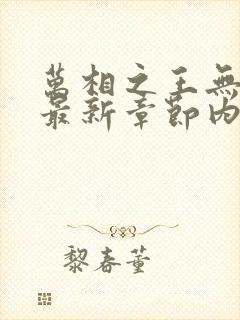 萬相之王無
最新章節內
黎春董